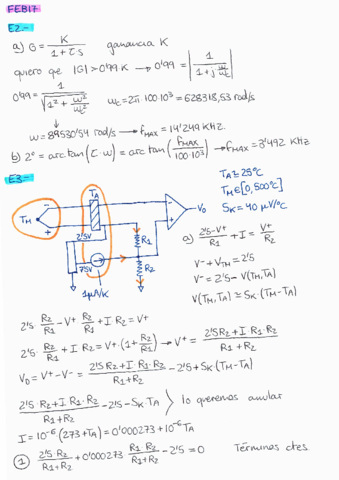 FEB17
E2.-
a) G = K / (1 + τs)   ganancia K
quiero qe |G| > 0'99 K → 0'99 = | 1 / (1 + j w/wτ) |
0'99 = 1 / √(1² + w²/wτ²)   wτ = 2π·100·10³ = 628318,53 rad/s
w = 89530'54 rad/s → fMAX = 14'249 kHz.
b) 2° = arc tan(τ·w) = arc tan(fMAX / 100·10³) → fMAX = 3'492 kHz
E3.-
TA
TM
2'5V
7'5V
1µA/K
R1
R2
V0
TA ≃ 25°C
TM ∈ [0, 500°C]
SK = 40 µV/°C
a) (2'5 - V⁺)/R1 + I = V⁺/R2
V⁻ + VTM = 2'5
V⁻ = 2'5 - V(TM,TA)
V(TM,TA) ≃ SK(TM - TA)
2'5·R2/R1 - V⁺ R2/R1 + I R2 = V⁺
2'5·R2/R1 + I R2 = V⁺·(1 + R2/R1) → V⁺ = (2'5R2 + I·R1·R2)/(R1 + R2)
V0 = V⁺ - V⁻ = (2'5R2 + I·R1·R2)/(R1 + R2) - 2'5 + SK(TM - TA)
(2'5R2 + I·R1·R2)/(R1 + R2) - 2'5 - SK TA > lo queremos anular
I = 10⁻⁶(273 + TA) = 0'000273 + 10⁻⁶TA
① 2'5·R2/(R1+R2) + 0'000273 R1·R2/(R1+R2) - 2'5 = 0   Términos ctes.